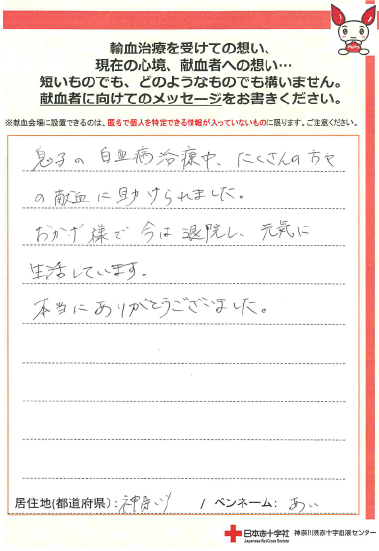 輸血治療を受けての想い、
現在の心境、献血者への想い…
短いものでも、どのようなものでも構いません。
献血者に向けてのメッセージをお書きください。
※献血会場に設置できるのは、匿名で個人を特定できる情報が入っていないものに限ります。ご注意ください。
息子の白血病治療中、たくさんの方々
の献血に助けられました。
おかげ様で今は退院し、元気に
生活しています。
本当にありがとうございました。
居住地(都道府県):神奈川 / ペンネーム: あい
日本赤十字社 神奈川県赤十字血液センター
Japanese Red Cross Society